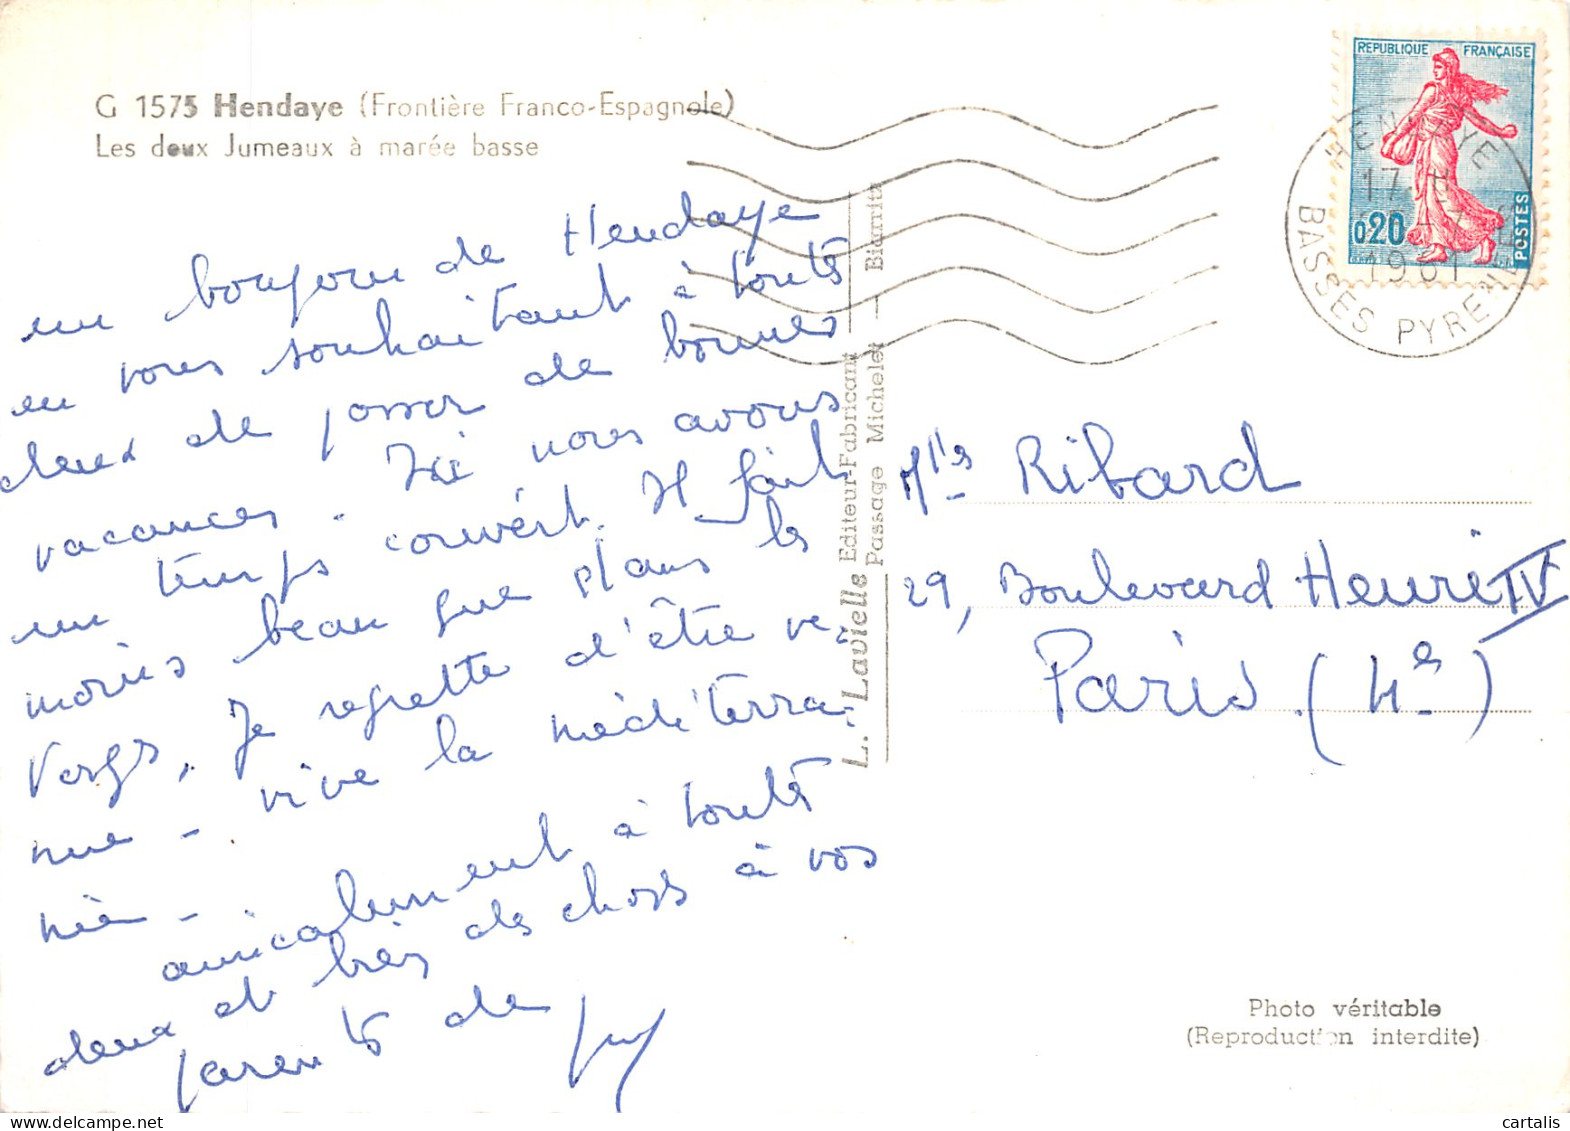 G 1575 Hendaye (Frontière Franco-Espagnole)
Les deux Jumeaux à marée basse
un bonjour de Hendaye
en vous souhaitant à toutes
deux de passer de bonnes
vacances. Ici nous avons
un temps couvert. Il fait
moins beau que dans les
Vosges. Je regrette d'être ve-
nue - vive la méditerra-
née -
amicalement à toutes
deux et bien des choses à vos
parents de
L. Lavielle Editeur-Fabricant
Passage Michelet — Biarritz
REPUBLIQUE FRANÇAISE
0,20
POSTES
HENDAYE
17 H
1961
BASSES PYRENEES
Mlles Ribard
29, Boulevard Henri IV
Paris (4e)
Photo véritable
(Reproduction interdite)
cartalis